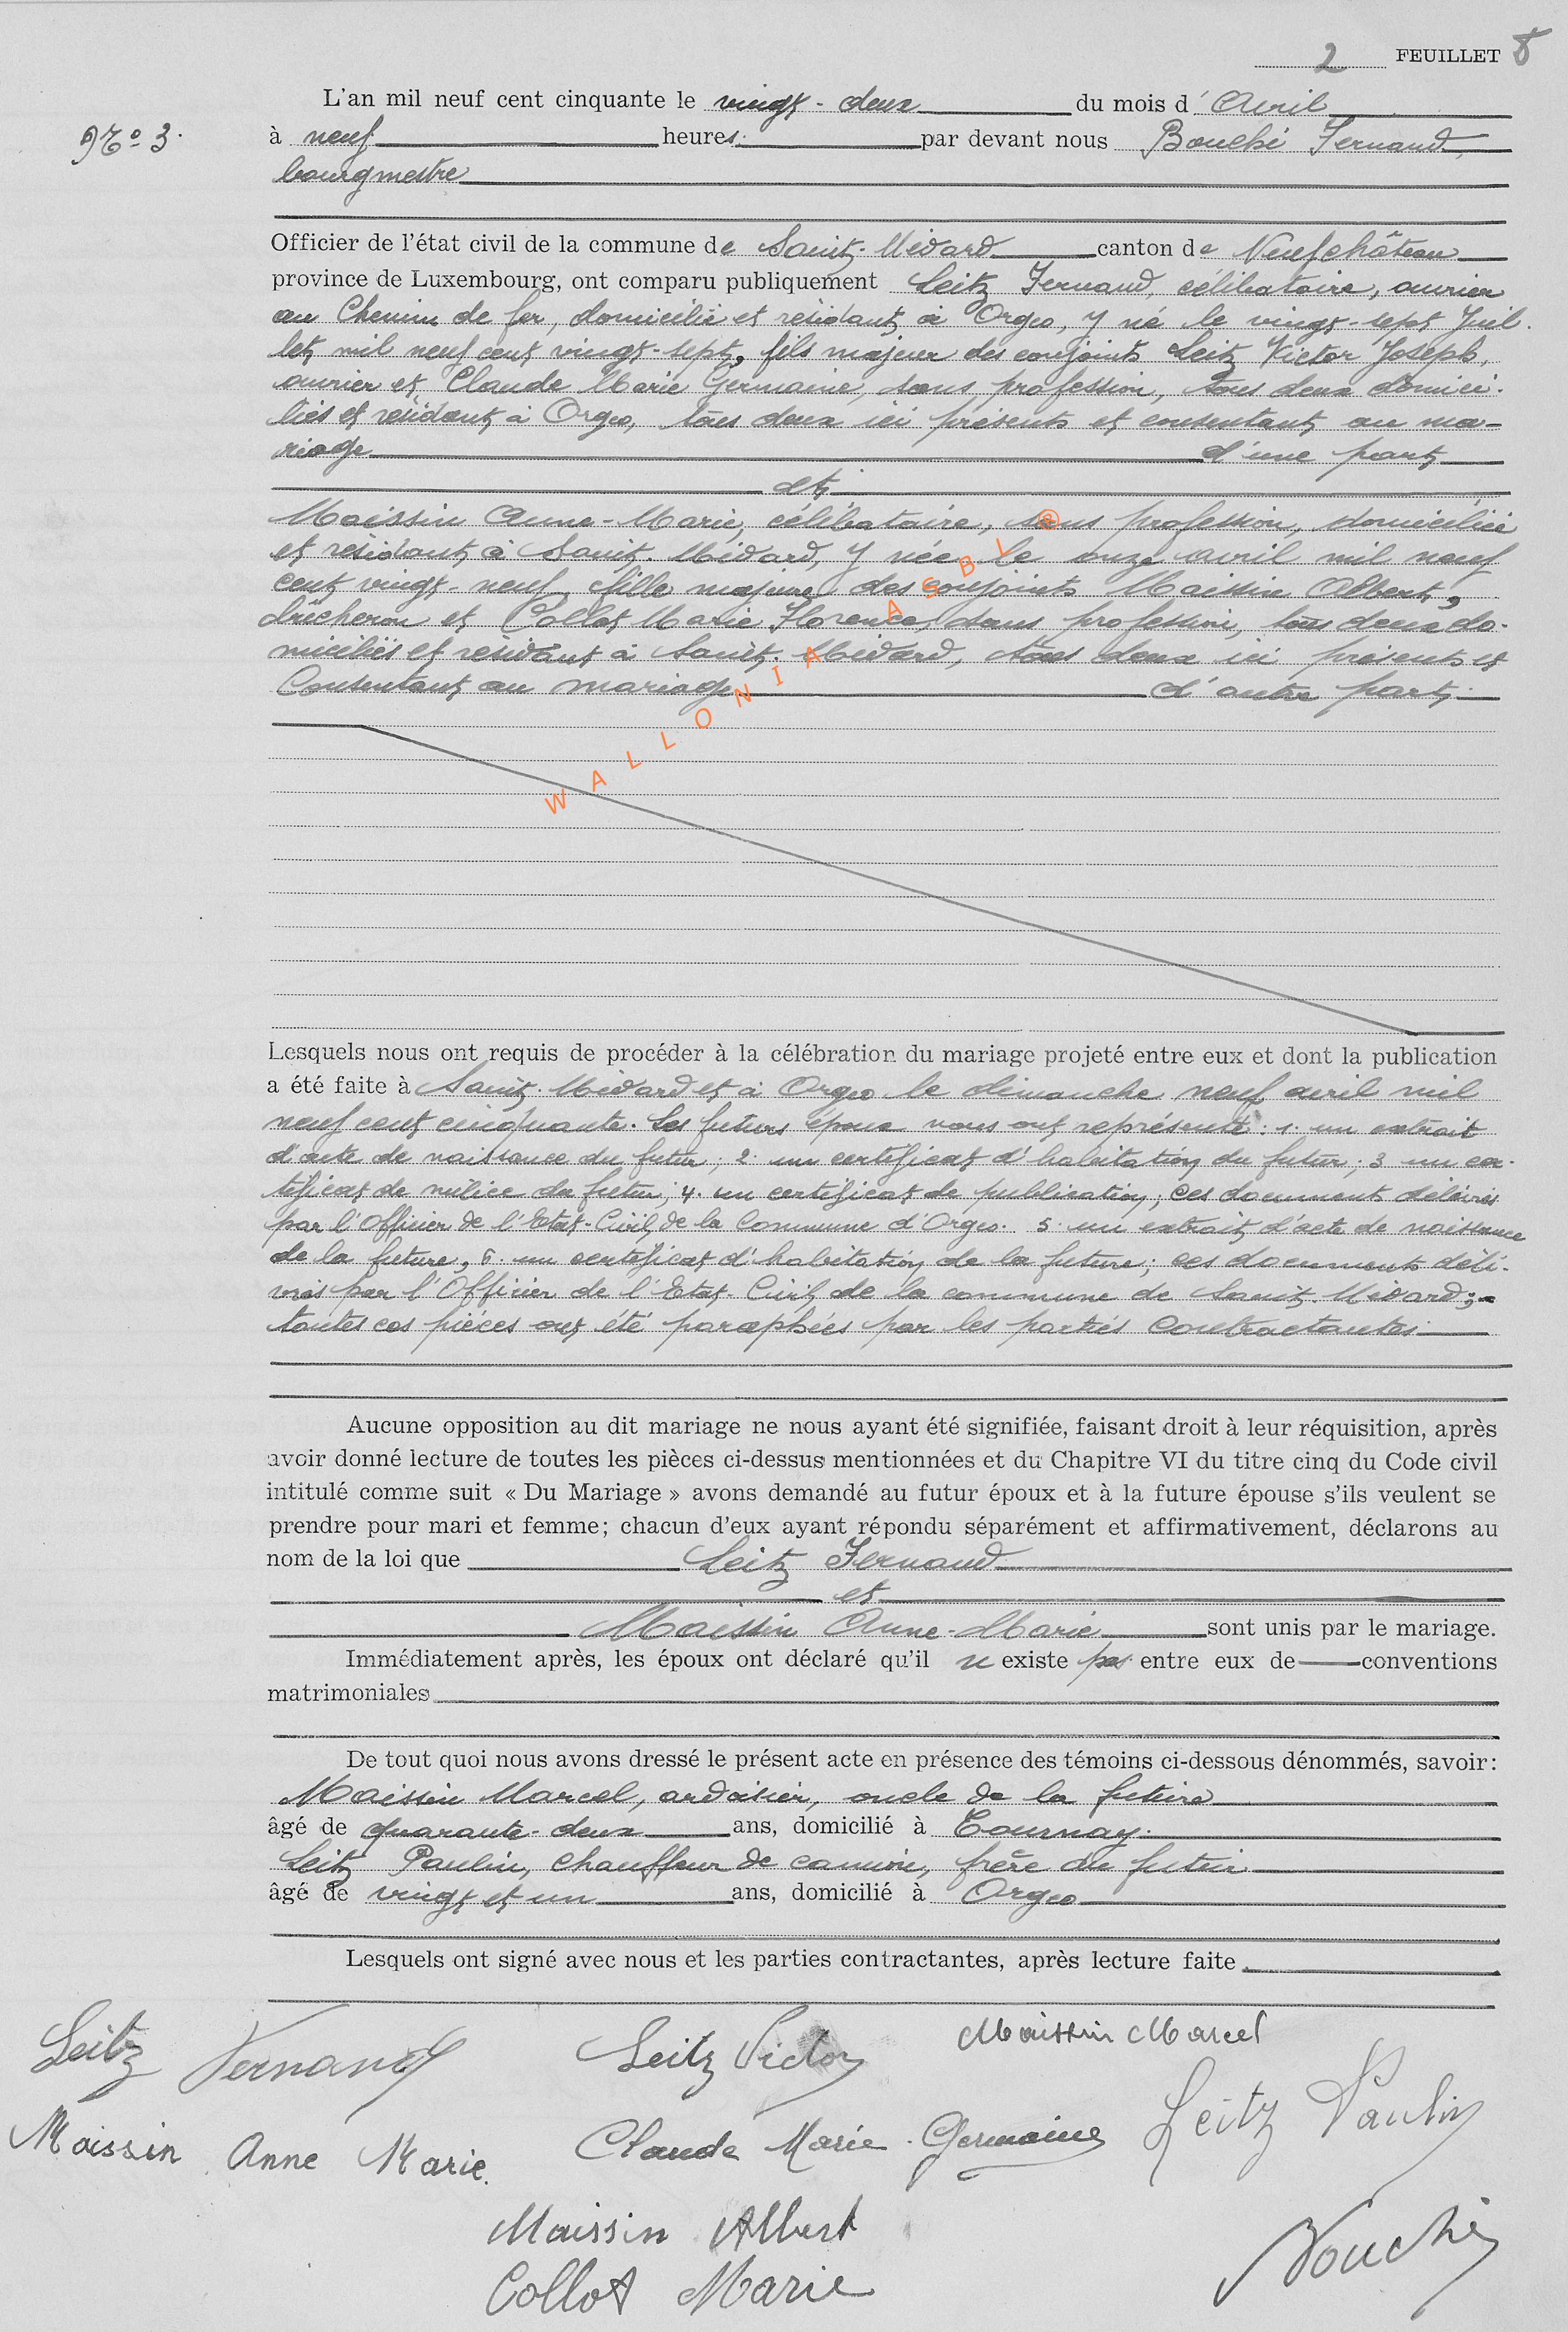 2 FEUILLET 8
L'an mil neuf cent cinquante le vingt-deux du mois d'Avril
N° 3. à neuf heures par devant nous Bouché Fernand,
bourgmestre
Officier de l'état civil de la commune de Saint-Médard canton de Neufchâteau
province de Luxembourg, ont comparu publiquement Leitz Fernand, célibataire, ouvrier
au Chemin de fer, domicilié et résidant à Orgeo, y né le vingt-sept Juil-
let mil neuf cent vingt-sept, fils majeur des conjoints Leitz Victor Joseph,
ouvrier et Claude Marie Germaine, sans profession, tous deux domici-
liés et résidant à Orgeo, tous deux ici présents et consentant au ma-
riage d'une part
et
Maissin Anne-Marie, célibataire, sans profession, domiciliée
et résidant à Saint-Médard, y née le onze avril mil neuf
cent vingt-neuf, fille majeure des conjoints Maissin Albert,
bûcheron et Collot Marie Florence, sans profession, tous deux do-
miciliés et résidant à Saint-Médard, tous deux ici présents et
Consentant au mariage d'autre part.
WALLONIA ASBL ®
Lesquels nous ont requis de procéder à la célébration du mariage projeté entre eux et dont la publication
a été faite à Saint-Médard et à Orgeo le dimanche neuf avril mil
neuf cent cinquante. Les futurs époux nous ont représenté : 1. un extrait
d'acte de naissance du futur; 2. un certificat d'habitation du futur; 3 un cer-
tificat de milice du futur; 4. un certificat de publication; ces documents délivrés
par l'Officier de l'Etat-Civil de la Commune d'Orgeo. 5. un extrait d'acte de naissance
de la future, 6. un certificat d'habitation de la future; ces documents déli-
vrés par l'Officier de l'Etat-Civil de la commune de Saint-Médard;
toutes ces pièces ont été paraphées par les parties contractantes.
Aucune opposition au dit mariage ne nous ayant été signifiée, faisant droit à leur réquisition, après
avoir donné lecture de toutes les pièces ci-dessus mentionnées et du Chapitre VI du titre cinq du Code civil
intitulé comme suit « Du Mariage » avons demandé au futur époux et à la future épouse s'ils veulent se
prendre pour mari et femme; chacun d'eux ayant répondu séparément et affirmativement, déclarons au
nom de la loi que Leitz Fernand
et
Maissin Anne-Marie sont unis par le mariage.
Immédiatement après, les époux ont déclaré qu'il n'existe pas entre eux de conventions
matrimoniales
De tout quoi nous avons dressé le présent acte en présence des témoins ci-dessous dénommés, savoir:
Maissin Marcel, ardoisier, oncle de la future
âgé de quarante-deux ans, domicilié à Tournay.
Leitz Paulin, chauffeur de camion, frère du futur
âgé de vingt et un ans, domicilié à Orgeo
Lesquels ont signé avec nous et les parties contractantes, après lecture faite
Leitz Fernand Leitz Victor Maissin Marcel
Maissin Anne Marie. Claude Marie-Germaine Leitz Paulin
Maissin Albert
Collot Marie Bouché